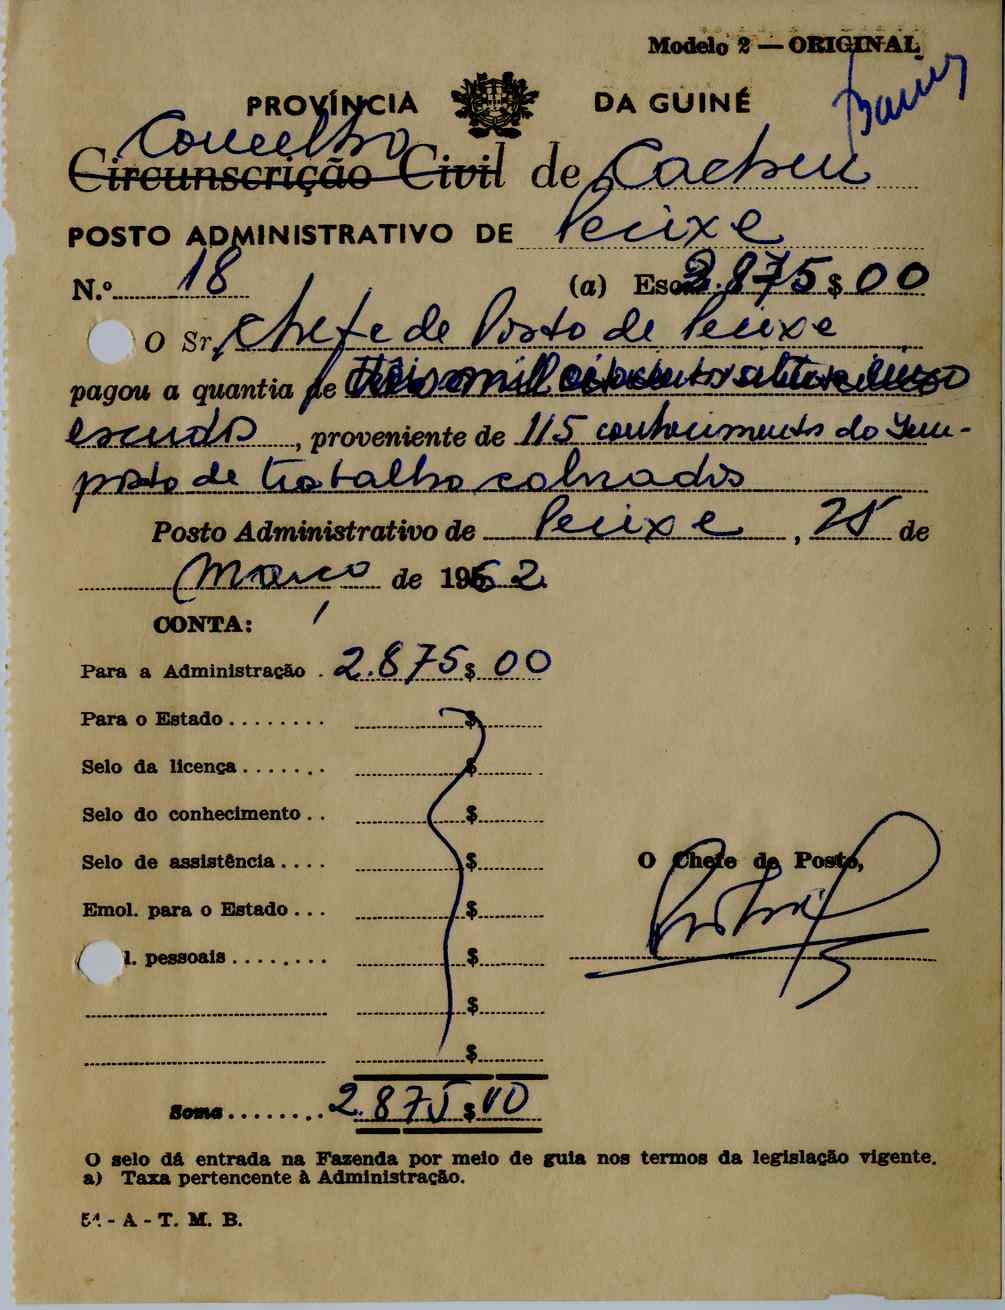 Modelo 2 — ORIGINAL
PROVÍNCIA DA GUINÉ
Concelho
Circunscrição Civil de Cacheu
POSTO ADMINISTRATIVO DE Pecixe
N.º 18 (a) Esc. 2.875$00
O Sr. Chefe de Posto de Pecixe
pagou a quantia de mil oitocentos setenta e cinco
escudos, proveniente de 115 conhecimentos do Im-
posto de trabalho cobrados
Posto Administrativo de Pecixe, 25 de
Março de 1962
CONTA:
Para a Administração . 2.875$00
Para o Estado ........ $
Selo da licença ....... $
Selo do conhecimento .. $
Selo de assistência .... $
Emol. para o Estado ... $
l. pessoais ........ $
$
$
Soma ........ 2.875$00
O Chefe de Posto,
O selo dá entrada na Fazenda por meio de guia nos termos da legislação vigente.
a) Taxa pertencente à Administração.
- A - T. M. B.